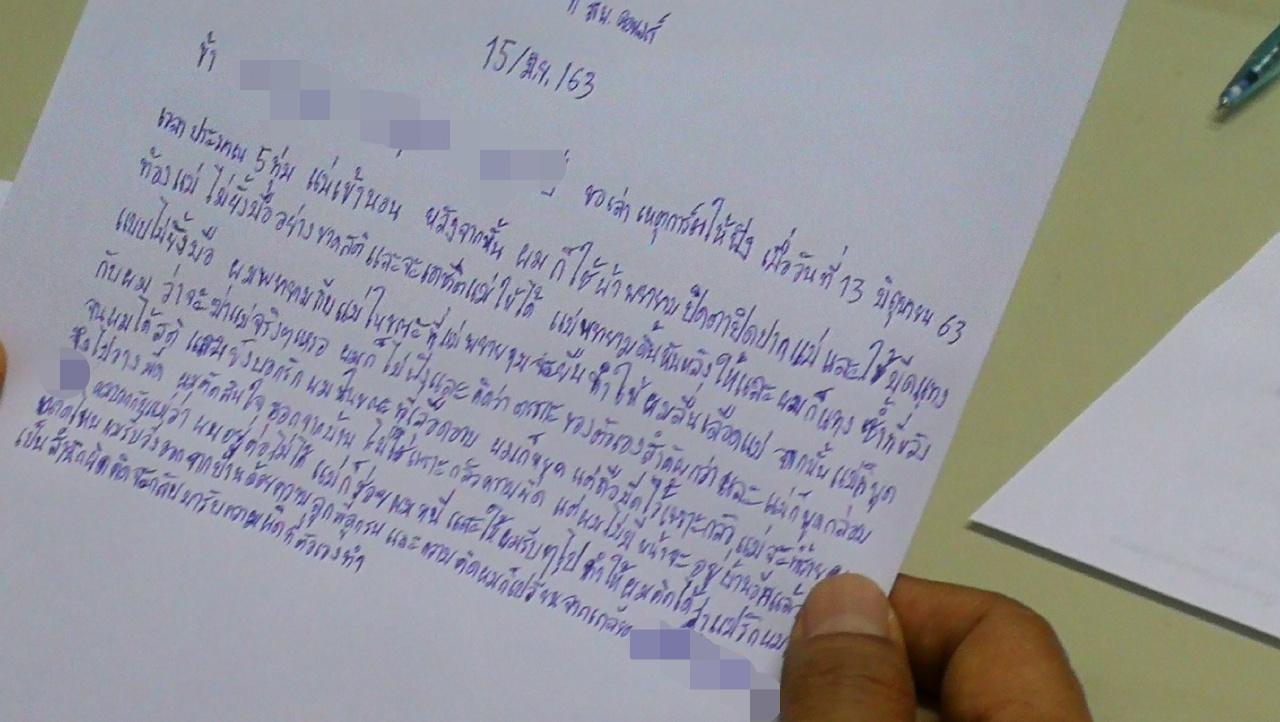 ที่ สน. ดอนเมือง
15/มิ.ย./63
ข้า
ขอเล่า เหตุการณ์ให้ฟัง เมื่อวันที่ 13 มิถุนายน 63
เวลาประมาณ 5 ทุ่ม แม่เข้านอน หลังจากนั้น ผม ก็ใช้ผ้า พยายาม ปิดตาปิดปาก แม่ และใช้มีดแทง
ท้องแม่ ไม่ยั้งมือ อย่างขาดสติ และจะเอาชีวิตแม่ให้ได้ แม่พยายามดิ้นหันหลังให้และ ผมก็แทง ซ้ำที่หลัง
แบบไม่ยั้งมือ ผมพยายามกับแม่ในขณะที่แม่พยายามจะยืน ทำให้ผมลื่นเลือดแม่ จากนั้น แม่ก็พูด
กับผม ว่าจะฆ่าแม่จริงๆเหรอ ผมก็ไม่ฟังและ คิดว่า ของตัวเองสำคัญกว่า และ แม่ก็พูดกล่อม
จนผมได้สติ และยังบอกรัก ผมในขณะที่เลือดอาบ ผมก็หยุด แต่ถือมีดไว้เพราะกลัว แม่จะทำร้าย
ผมตัดสินใจ ออกจากบ้าน ไม่ใช่เพราะกลัวความผิด แต่ผมไม่มีหน้าจะอยู่บ้านอีกแล้ว
ผมบอกกับแม่ว่า ผมอยู่ต่อไม่ได้ แม่ก็ช่วยผมหนี และให้ผมรีบๆไป ทำให้ผมคิดได้ว่าแม่รักผม
ผมรีบวิ่งออกจากบ้านด้วยความ และความคิดผมก็เปลี่ยนจาก
เป็นสำนึกผิดคิดจะกลับมารับความผิดที่ตัวเองทำ